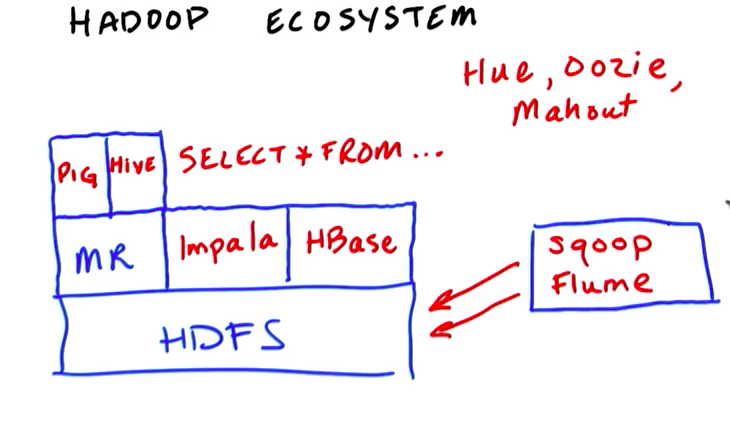 HADOOP ECOSYSTEM
Hue, Oozie,
Mahout
PIG HIVE SELECT * FROM...
MR Impala HBase
HDFS
Sqoop
Flume